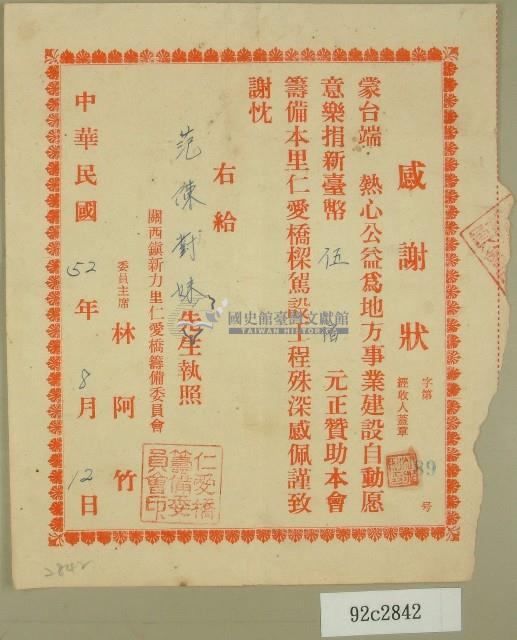 感謝狀
字第 89 號
經收人蓋章
蒙台端 熱心公益爲地方事業建設自動愿
意樂捐新臺幣 伍 拾 元正贊助本會
籌備本里仁愛橋樑駕設工程殊深感佩謹致
謝忱
右給
范陳對妹 先生執照
關西鎮新力里仁愛橋籌備委員會
委員主席 林阿竹
仁愛橋
籌備委
員會印
中華民國 52 年 8 月 12 日
國史館臺灣文獻館
TAIWAN HISTORICA
2842
92c2842